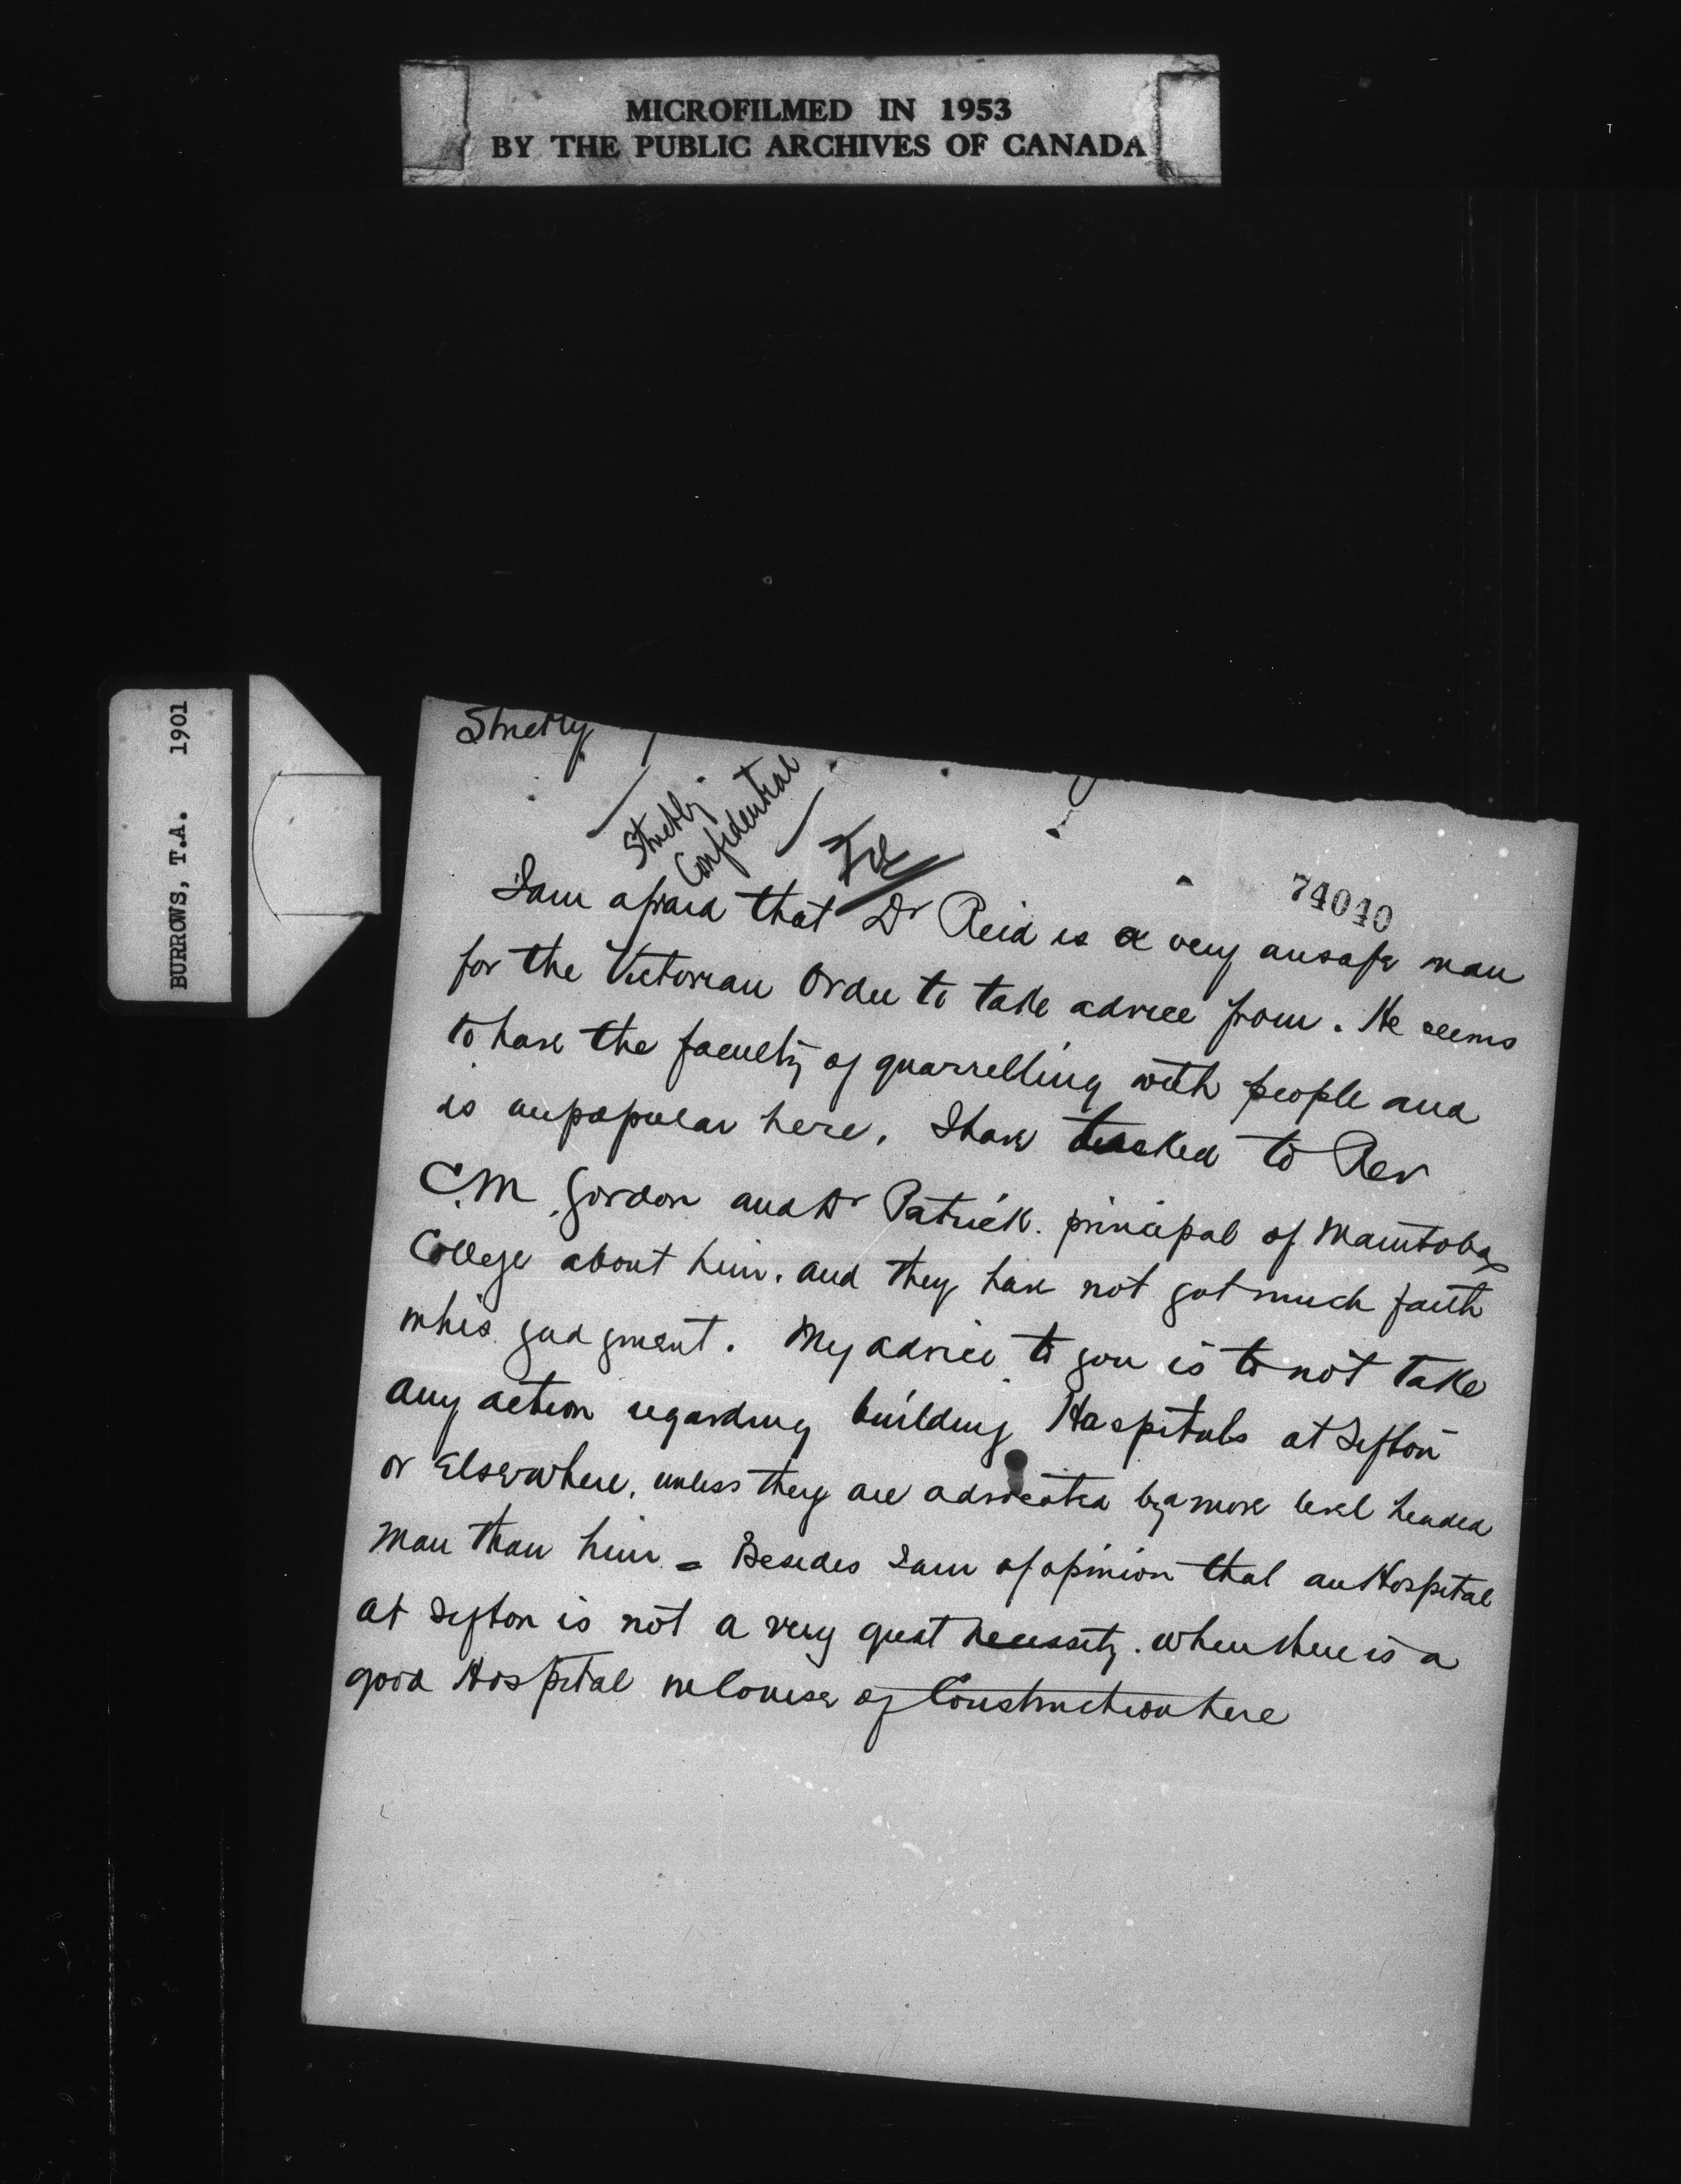 MICROFILMED IN 1953
BY THE PUBLIC ARCHIVES OF CANADA
BURROWS, T.A. 1901
Strictly
Strictly
Confidential
74040
I am afraid that Dr Reid is a very unsafe man
for the Victorian Order to take advice from. He seems
to have the faculty of quarrelling with people and
is unpopular here. I have talked to Rev
C.M. Gordon and Dr Patrick. principal of Manitoba
College about him. and they have not got much faith
in his judgment. My advice to you is to not take
any action regarding building Hospitals at Sifton
or Elsewhere. unless they are advocated by a more level headed
man than him = Besides I am of opinion that an Hospital
at Sifton is not a very great necessity. when there is a
good Hospital in Course of Construction here